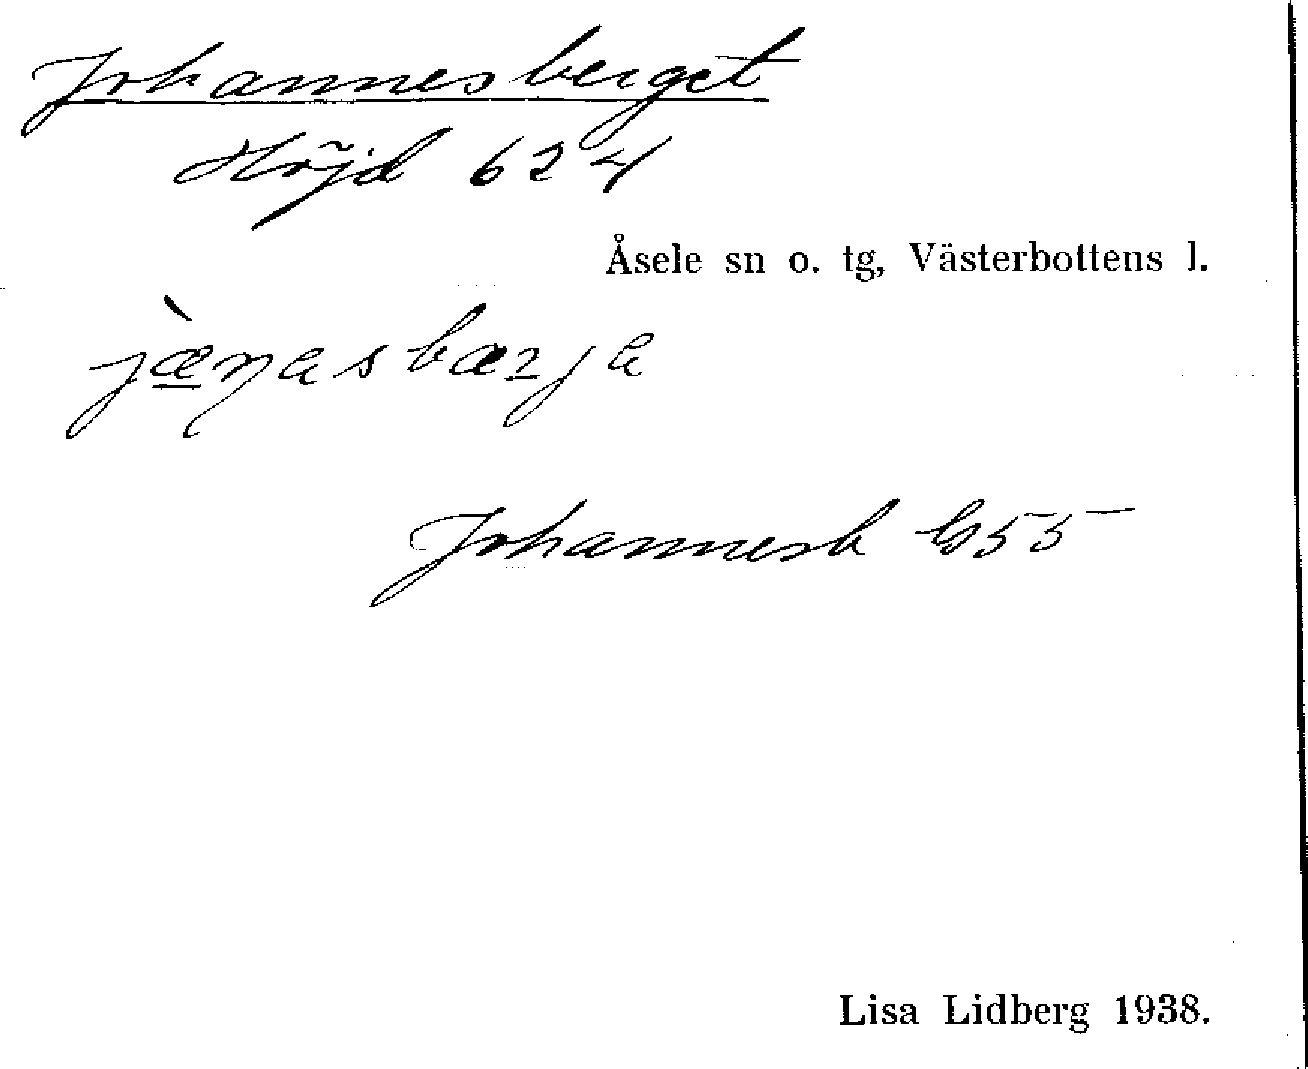 Johannesberget
Höjd 624
Åsele sn o. tg, Västerbottens l.
Johannesb G55
Lisa Lidberg 1938.